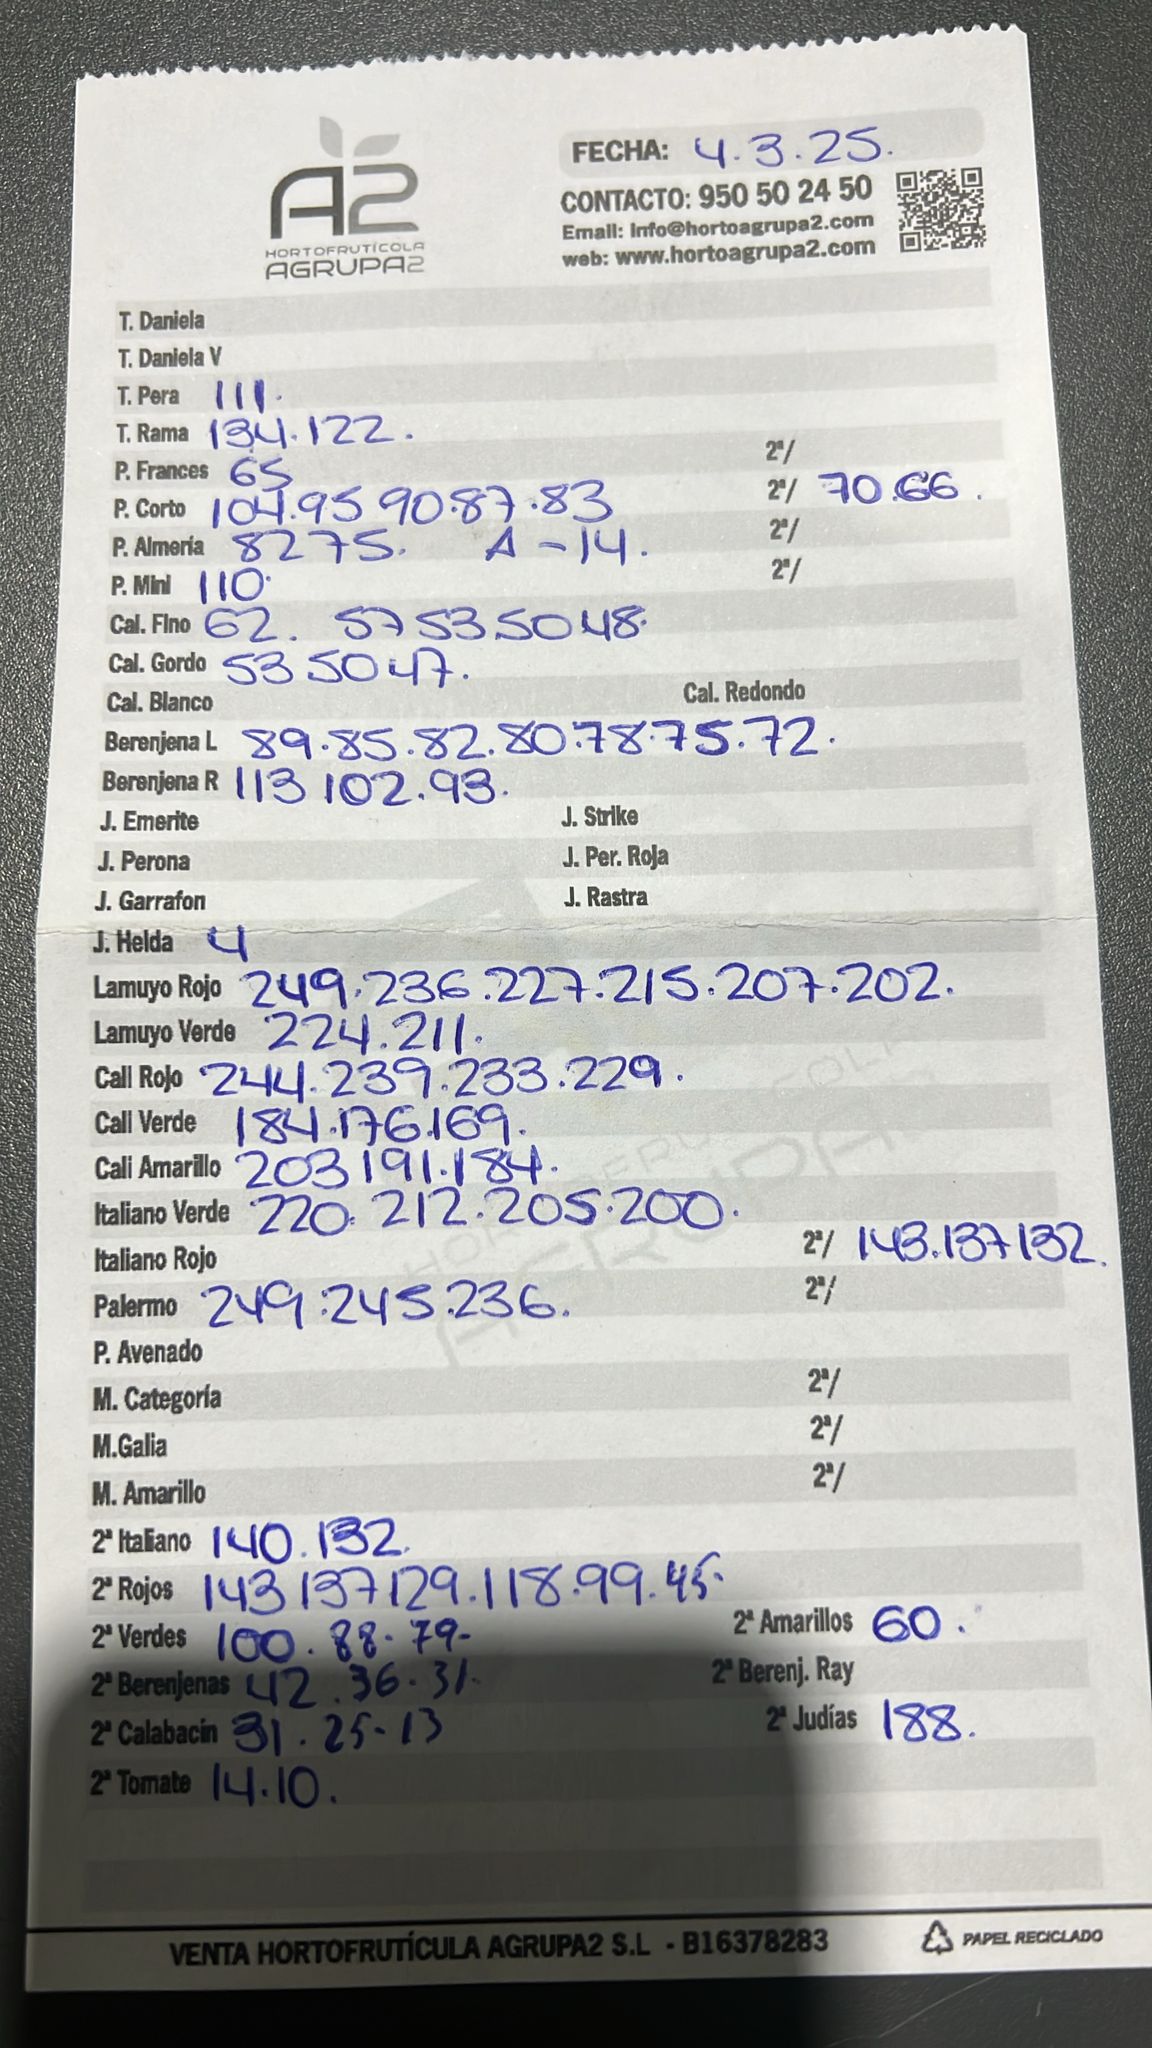 A2
HORTOFRUTÍCOLA
AGRUPA2
FECHA: 4.3.25.
CONTACTO: 950 50 24 50
Email: Info@hortoagrupa2.com
web: www.hortoagrupa2.com
T. Daniela
T. Daniela V
T. Pera 111.
T. Rama 134.122.
P. Frances 65 2ª/
P. Corto 104.95 90.87.83 2ª/ 70.66.
P. Almería 82 75. A-14. 2ª/
P. Mini 110. 2ª/
Cal. Fino 62. 57 53 50 48.
Cal. Gordo 53 50 47.
Cal. Blanco Cal. Redondo
Berenjena L 89.85.82.80.78.75.72.
Berenjena R 113 102.93.
J. Emerite J. Strike
J. Perona J. Per. Roja
J. Garrafon J. Rastra
J. Helda 4
Lamuyo Rojo 249.236.227.215.207.202.
Lamuyo Verde 224.211.
Cali Rojo 244.239.233.229.
Cali Verde 184.176.169.
Cali Amarillo 203 191.184.
Italiano Verde 220. 212.205.200.
Italiano Rojo 2ª/ 143.137 132.
Palermo 249.245.236. 2ª/
P. Avenado
M. Categoría 2ª/
M.Galia 2ª/
M. Amarillo 2ª/
2ª Italiano 140.132.
2ª Rojos 143 137 129.118.99.45.
2ª Verdes 100.88.79- 2ª Amarillos 60.
2ª Berenjenas 42.36.31. 2ª Berenj. Ray
2ª Calabacín 31.25-13 2ª Judías 188.
2ª Tomate 14.10.
VENTA HORTOFRUTÍCULA AGRUPA2 S.L - B16378283
PAPEL RECICLADO